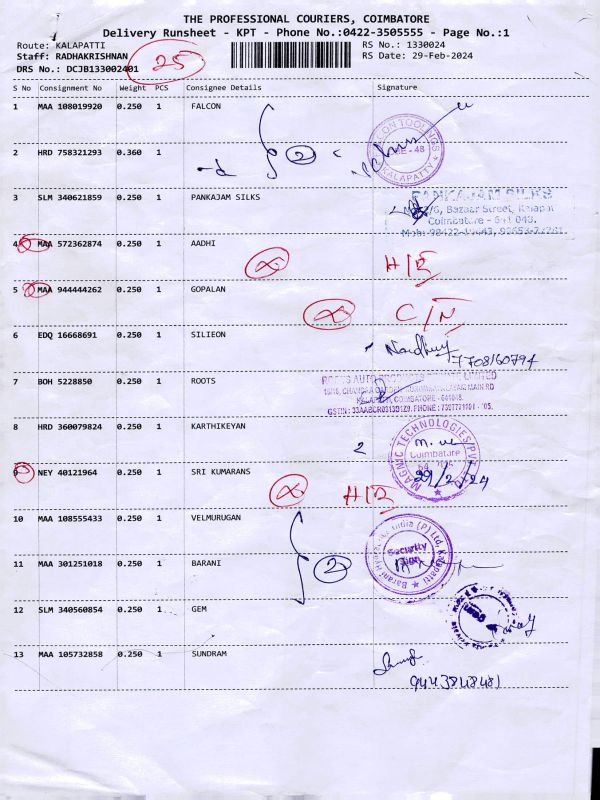 THE PROFESSIONAL COURIERS, COIMBATORE
Delivery Runsheet - KPT - Phone No.:0422-3505555 - Page No.:1
Route: KALAPATTI RS No.: 1330024
Staff: RADHAKRISHNAN RS Date: 29-Feb-2024
DRS No.: DCJB133002401 25
S No Consignment No Weight PCS Consignee Details Signature
1 MAA 108019920 0.250 1 FALCON
2 HRD 758321293 0.360 1 2
KALAPATTY
3 SLM 340621859 0.250 1 PANKAJAM SILKS
PANKAJAM SILKS
Bazaar Street, Kalapat
Coimbatore - 641 048.
4 MAA 572362874 0.250 1 AADHI
5 MAA 944444262 0.250 1 GOPALAN
6 EDQ 16668691 0.250 1 SILIEON
7708160794
7 BOH 5228850 0.250 1 ROOTS
8 HRD 360079824 0.250 1 KARTHIKEYAN 2
MAGNIC TECHNOLOGIES
Coimbatore
29/2/24
9 NEY 40121964 0.250 1 SRI KUMARANS
10 MAA 108555433 0.250 1 VELMURUGAN
11 MAA 301251018 0.250 1 BARANI 2
Security
12 SLM 340560854 0.250 1 GEM
13 MAA 105732858 0.250 1 SUNDRAM
9443848481